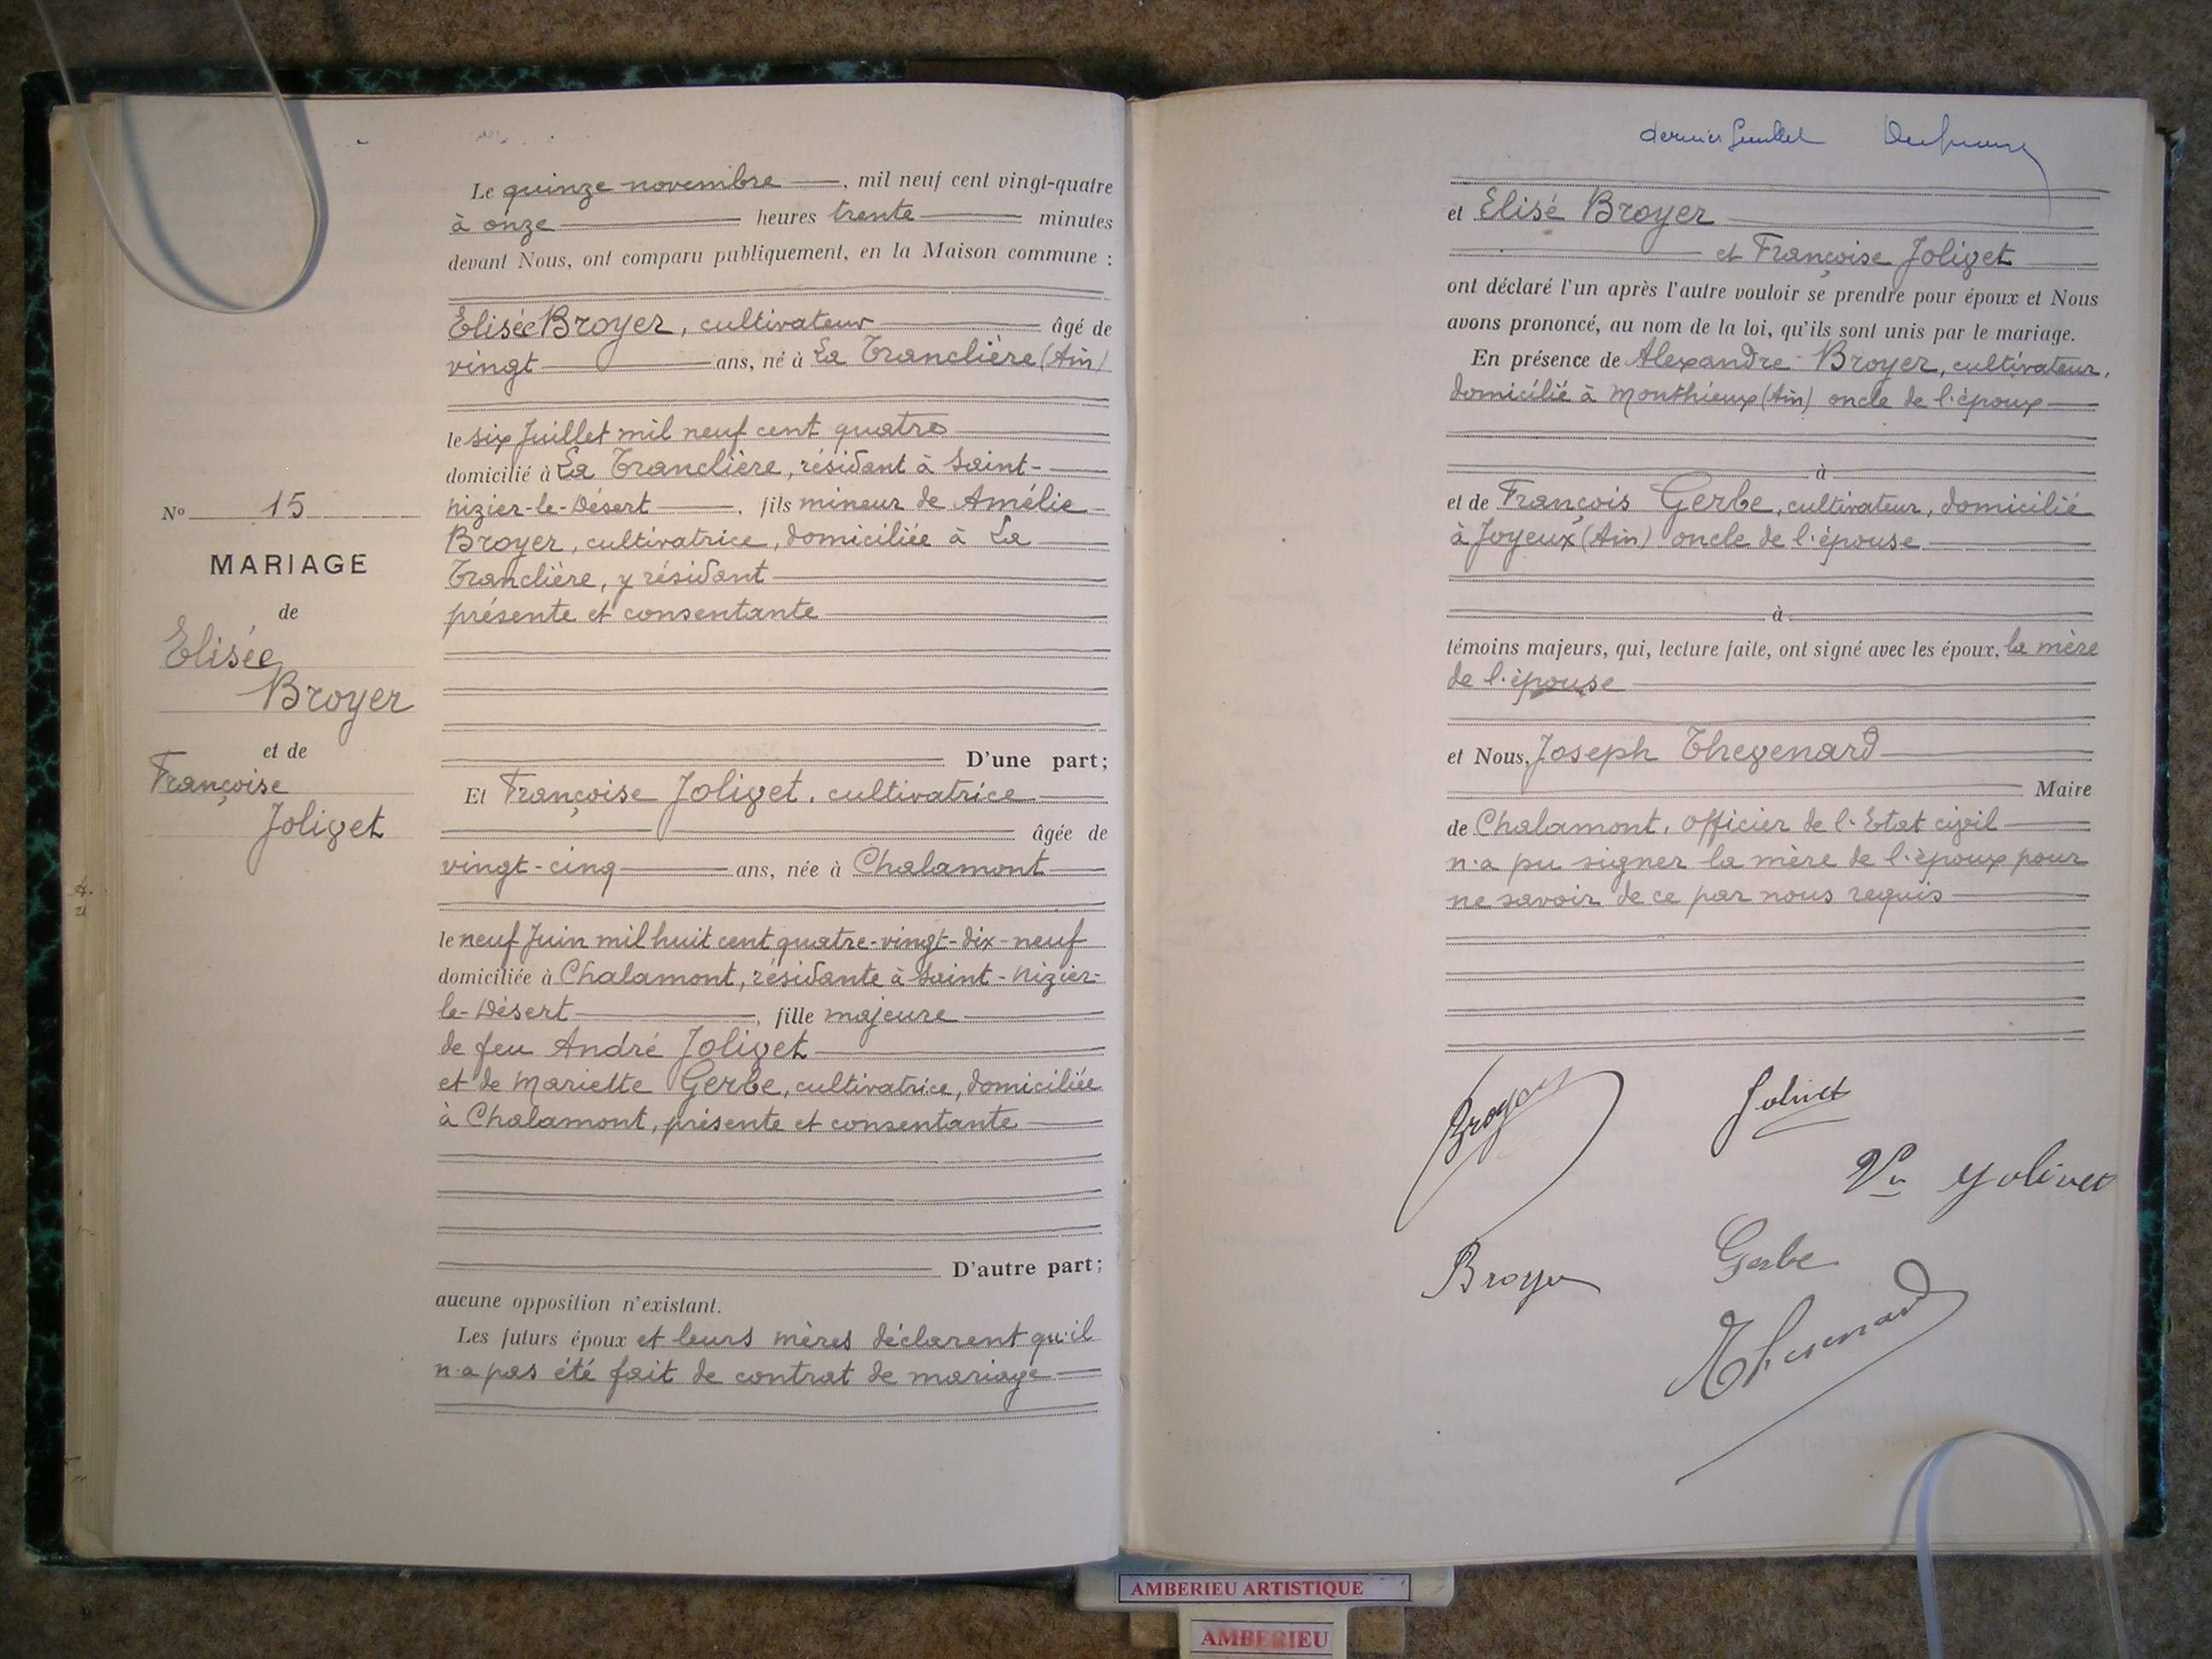 Le quinze novembre, mil neuf cent vingt-quatre
à onze heures trente minutes
devant Nous, ont comparu publiquement, en la Maison commune :
Elisée Broyer, cultivateur âgé de
vingt ans, né à La Tranclière (Ain)
le six Juillet mil neuf cent quatre
domicilié à La Tranclière, résidant à Saint-
Nizier-le-Désert, fils mineur de Amélie
Broyer, cultivatrice, domiciliée à La
Tranclière, y résidant
présente et consentante
D'une part;
Et Françoise Jolivet, cultivatrice
âgée de
vingt-cinq ans, née à Chalamont
le neuf Juin mil huit cent quatre-vingt-dix-neuf
domiciliée à Chalamont, résidante à Saint-Nizier-
le-Désert, fille majeure
de feu André Jolivet
et de Mariette Gerbe, cultivatrice, domiciliée
à Chalamont, présente et consentante
D'autre part;
aucune opposition n'existant.
Les futurs époux et leurs mères déclarent qu'il
n'a pas été fait de contrat de mariage
No 15
MARIAGE
de
Elisée
Broyer
et de
Françoise
Jolivet
dernier feuillet
et Elisé Broyer
et Françoise Jolivet
ont déclaré l'un après l'autre vouloir se prendre pour époux et Nous
avons prononcé, au nom de la loi, qu'ils sont unis par le mariage.
En présence de Alexandre Broyer, cultivateur,
domicilié à Monthieux (Ain) oncle de l'époux
à
et de François Gerbe, cultivateur, domicilié
à Joyeux (Ain) oncle de l'épouse
à
témoins majeurs, qui, lecture faite, ont signé avec les époux, la mère
de l'épouse
et Nous, Joseph Thevenard
Maire
de Chalamont, officier de l'Etat civil
n'a pu signer la mère de l'époux pour
ne savoir de ce par nous requis
Broyer
Jolivet
Ve Jolivet
Broyer
Gerbe
Thevenard
AMBERIEU ARTISTIQUE
AMBERIEU